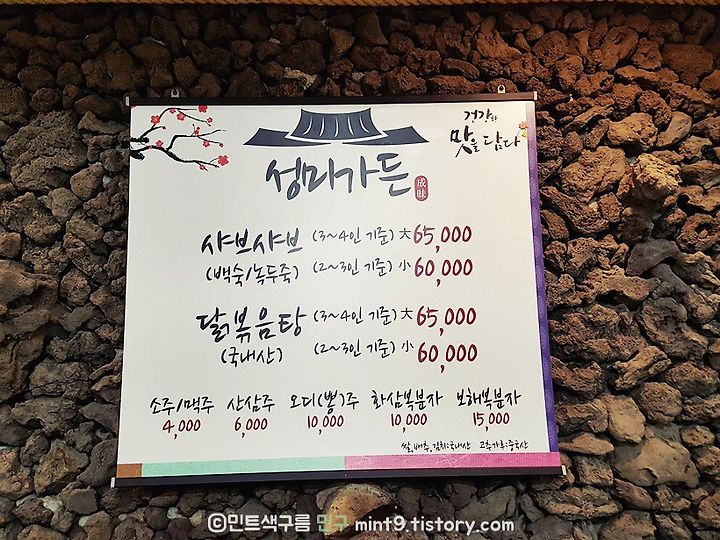 건강과
맛을 담다
성미가든
成味
샤브샤브 (3~4인 기준) 大 65,000
(백숙/녹두죽) (2~3인 기준) 小 60,000
닭볶음탕 (3~4인 기준) 大 65,000
(국내산) (2~3인 기준) 小 60,000
소주/맥주 산삼주 오디(뽕)주 화삼복분자 보해복분자
4,000 6,000 10,000 10,000 15,000
쌀,배추,김치:국내산 고춧가루:중국산
©민트색구름 연구 mint9.tistory.com